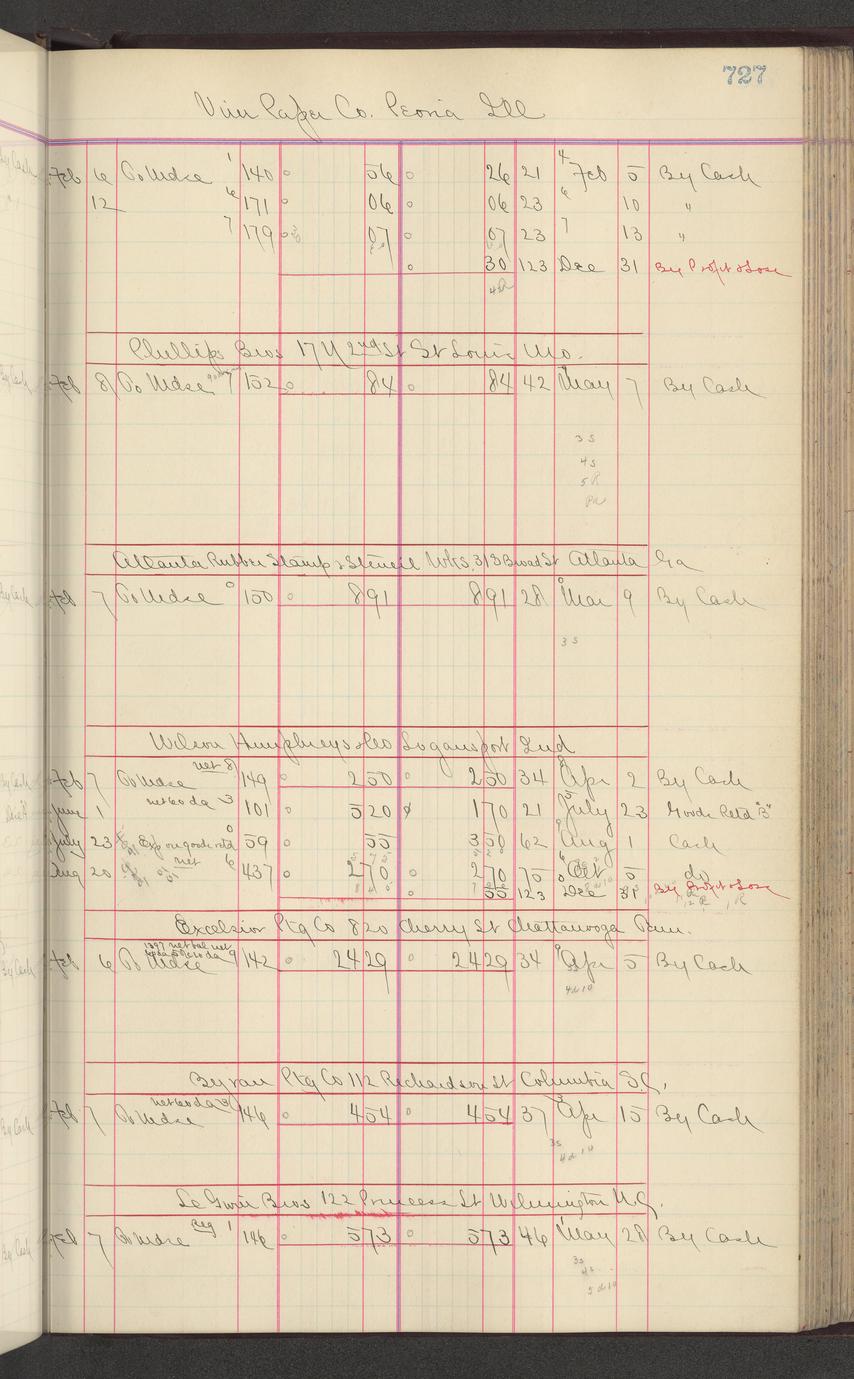 727
Paper Co. Peoria Ill
Feb 6 To Mdse 1 140 56 26 21 4 Feb 5 By Cash
12 6 171 06 06 23 6 10 "
7 179 07 07 23 7 13 "
30 123 Dec 31 By Profit & Loss
Phillips Bros 17 N 2nd St St Louis Mo.
Feb 8 To Mdse 7 152 84 84 42 May 7 By Cash
3 s
4 s
5 R
Atlanta Rubber Stamp & Stencil Wks. 313 Broad St Atlanta Ga
Feb 7 To Mdse 0 150 891 891 28 Mar 9 By Cash
3 s
Wilson Humphreys & Co Logansport Ind
net 8
Feb 7 To Mdse 149 250 250 34 Apr 2 By Cash
June 1 net 60 da 3 101 520 170 21 July 23 Goods Retd "B"
July 23 Exp on goods retd 0 59 55 350 62 Aug 1 Cash
Aug 20 net 6 437 270 270 75 Oct 5 do
55 123 Dec 31 By Profit & Loss
Excelsior Ptg Co 820 Cherry St Chattanooga Tenn.
Feb 6 To Mdse 9 142 2429 2429 34 Apr 5 By Cash
4 d 10
Byran Ptg Co 112 Richardson St Columbia S.C.
net 60 da 3
Feb 7 To Mdse 146 454 454 37 Apr 15 By Cash
3s
4 d 10
Le Gwin Bros 122 Princess St Wilmington N.C.
Feb 7 To Mdse Reg 1 146 573 573 46 May 28 By Cash
3s
4s
5 d 10